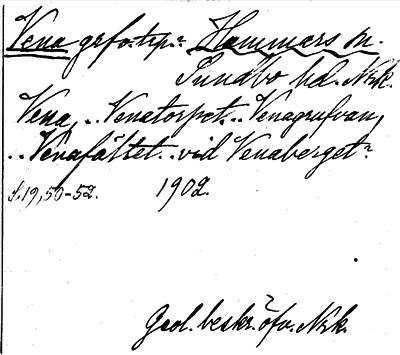 Vena grfo.trp. Hammars sn.
Sundbo hd. Nrk.
Vena, .. Venatorpet .. Venagrufvan,
.. Venafältet .. vid Venaberget
S. 19, 50-52. 1902.
Geol. beskr. öfv. Nrk.